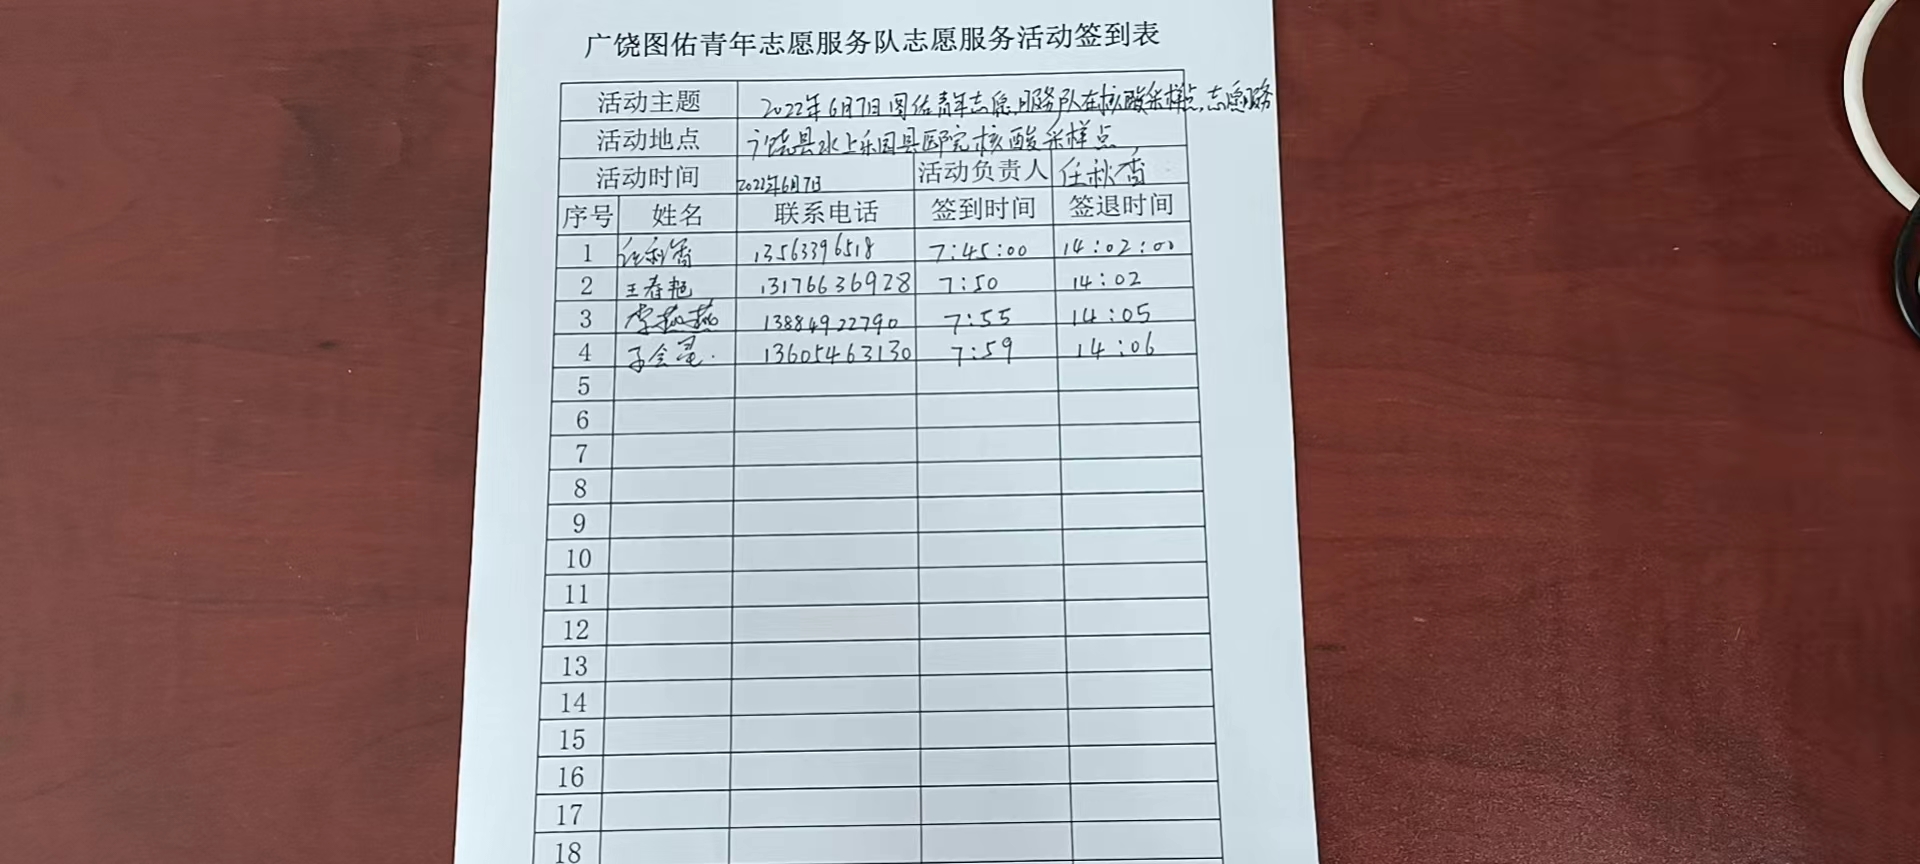 广饶图佑青年志愿服务队志愿服务活动签到表
活动主题 2022年6月7日图佑青年志愿服务队在核酸采样点,志愿服务
活动地点 广饶县水上乐园县医院核酸采样点
活动时间 2022年6月7日 活动负责人 任秋香
序号 姓名 联系电话 签到时间 签退时间
1 任秋香 13563396518 7:45:00 14:02:00
2 王春艳 13176636928 7:50 14:02
3 李燕燕 13884922790 7:55 14:05
4 13605463130 7:59 14:06
5
6
7
8
9
10
11
12
13
14
15
16
17
18